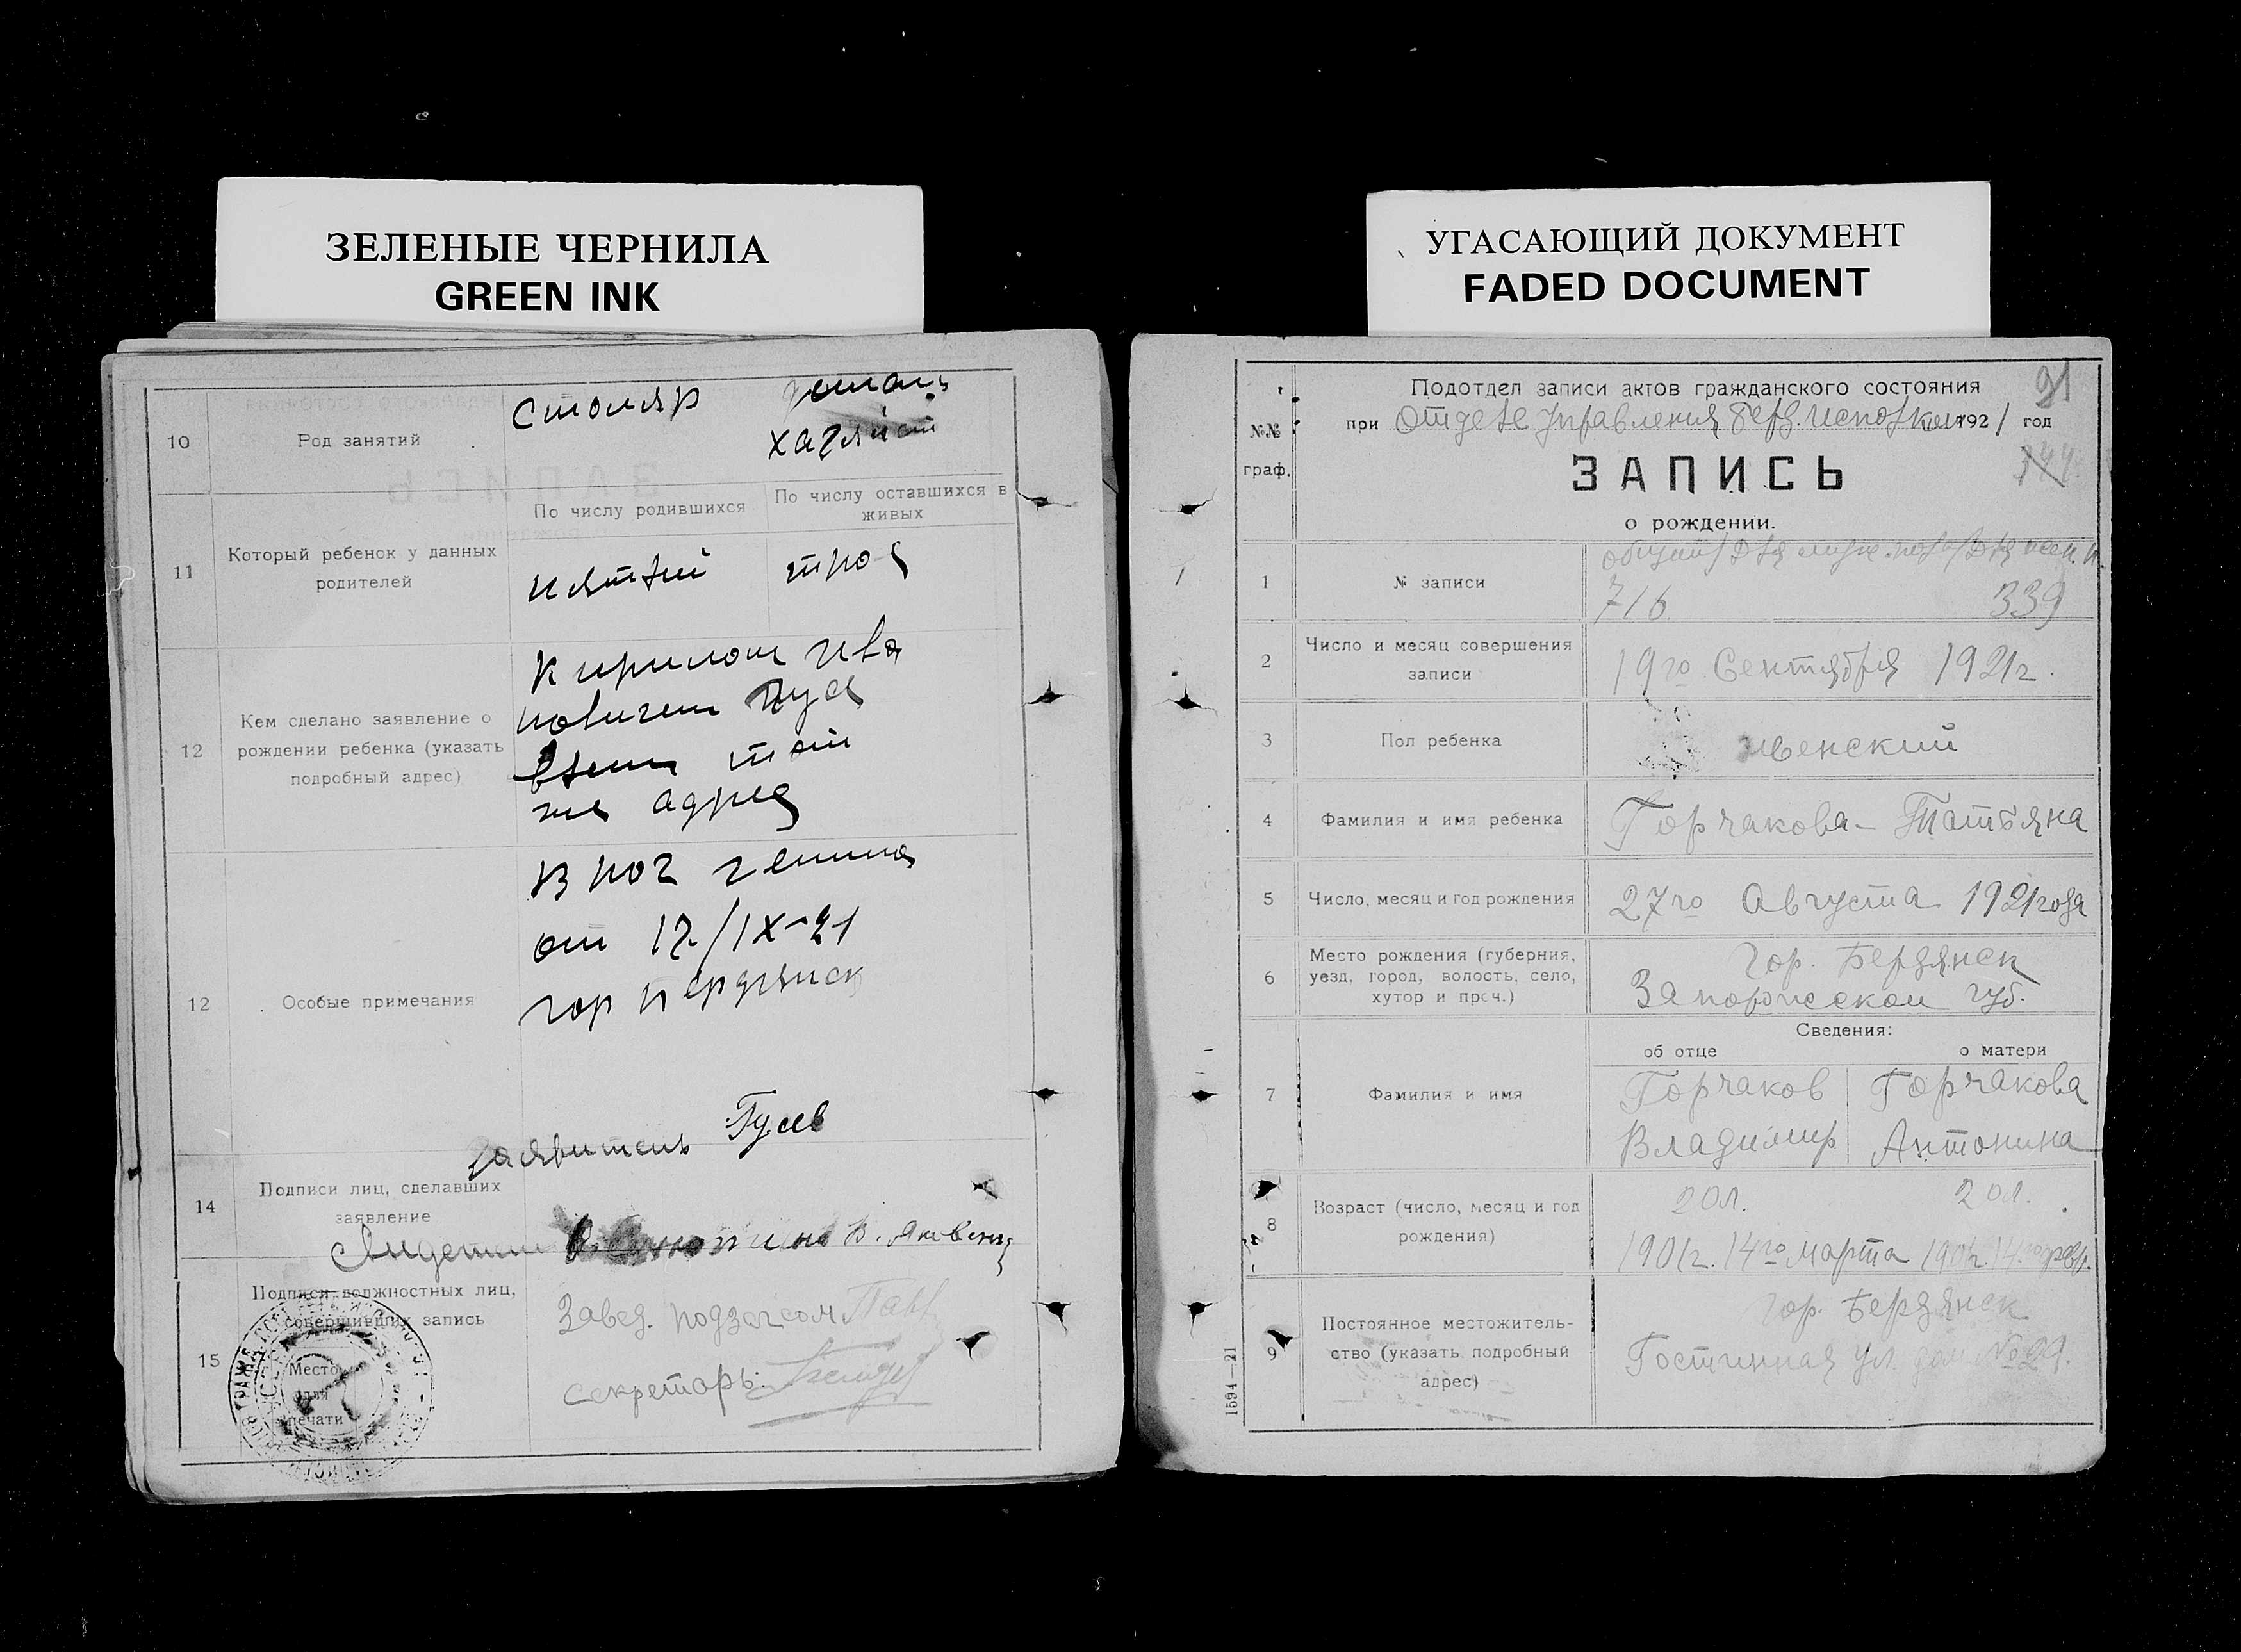 ЗЕЛЕНЫЕ ЧЕРНИЛА
GREEN INK
10
Род занятий
Столяр
хазяйст
11
Который ребенок у данных
родителей
По числу родившихся
По числу оставшихся в
живых
пятый
трое
12
Кем сделано заявление о
рождении ребенка (указать
подробный адрес)
Кирилом Ива
новичем Гусе
вым там
же адрес
12
Особые примечания
от 17/IX-21
гор Бердянск
Заявитель Гусев
14
Подписи лиц, сделавших
заявление
15
Подписи должностных лиц,
совершивших запись
Место
для
печати
Завед. подзагсом
Секретарь:
УГАСАЮЩИЙ ДОКУМЕНТ
FADED DOCUMENT
91
№№
граф.
Подотдел записи актов гражданского состояния
при Отделе Управления Берд. Исполком 1921 год
ЗАПИСЬ
о рождении.
1
№ записи
716
339
2
Число и месяц совершения
записи
19го Сентября 1921г.
3
Пол ребенка
женский
4
Фамилия и имя ребенка
Горчакова - Татьяна
5
Число, месяц и год рождения
27го Августа 1921 года
6
Место рождения (губерния,
уезд, город, волость, село,
хутор и проч.)
Гор. Бердянск
Запорожской губ.
Сведения:
об отце
о матери
7
Фамилия и имя
Горчаков
Владимир
Горчакова
Антонина
8
Возраст (число, месяц и год
рождения)
20л.
20л.
1901г. 14го марта
9
Постоянное местожитель-
ство (указать подробный
адрес)
гор. Бердянск
Гостинная ул. дом № 29.
1594—21